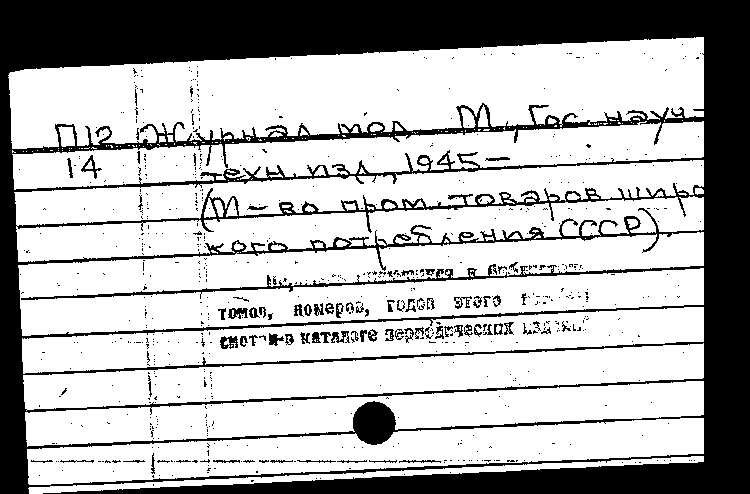 П12 Журнал мод. М., Гос. науч-
14 техн. изд., 1945—
(М-во пром. товаров широ
кого потребления СССР).
имеющихся в библиотеке
томов, номеров, годов этого
смотри в каталоге периодических изданий